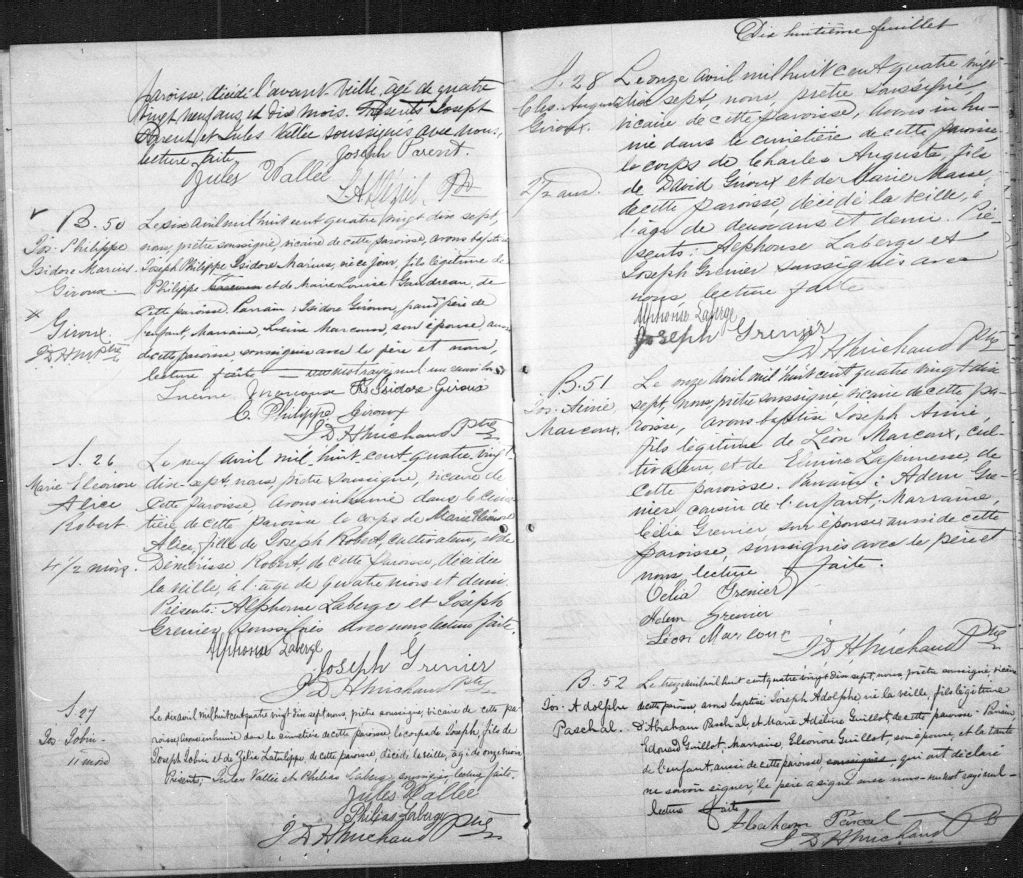 paroisse, décédé l'avant-veille, âgé de quatre
vingt neuf ans et dix mois. Présents Joseph
Parent, et Jules Vallée soussignés avec nous,
lecture faite. Joseph Parent.
Jules Vallée
Ptr
B. 50
Jos. Philippe
Isidore Marius
Giroux
Le six avril mil huit cent quatre vingt dix sept,
nous, prêtre soussigné, vicaire de cette paroisse, avons baptisé
Joseph Philippe Isidore Marius, né ce jour, fils légitime de
Philippe et de Marie Louise Gaudreau, de
cette paroisse. Parrain; Isidore Giroux, grand père de
l'enfant, Marraine, Lucine Marcoux, son épouse, aussi
de cette paroisse, soussignés avec le père et nous,
lecture faite
* Giroux
J D H M ptre
Marcoux Isidore Giroux
C. Philippe Giroux
J D H Michaud Ptre
S. 26
Marie Eléonore
Alice
Robert
4 1/2 mois
Le neuf avril mil huit cent quatre vingt
dix-sept, nous, prêtre soussigné, vicaire de
cette paroisse, avons inhumé dans le cime
tière de cette paroisse le corps de Marie Eléonore
Alice, fille de Joseph Robert, cultivateur, et de
Démérisse Robert, de cette paroisse, décédée
la veille, à l'age de quatre mois et demi.
Présents: Alphonse Laberge et Joseph
Grenier soussignés avec nous lecture faite.
Alphonse Laberge
Joseph Grenier
J D H Michaud Ptre
S. 27
Jos Jobin
11 mois
Le dix avril mil huit cent quatre vingt dix sept nous, prêtre soussigné, vicaire de cette pa-
roisse, avons inhumé dans le cimetière de cette paroisse, le corps de Joseph, fils de
Joseph Jobin et de Zélia Latulippe, de cette paroisse, décédé la veille, âgé de onze mois
Présents, Jules Vallée et Philias Laberge soussignés, lecture faite.
Jules Vallée
Philias Laberge
J D H Michaud Ptre
Dix huitième feuillet
S. 28
Chs. Auguste
Giroux.
2 1/2 ans.
Le onze avril mil huit cent quatre vingt
dix sept, nous, prêtre soussigné,
vicaire de cette paroisse, avons inhu-
mé dans le cimetière de cette paroisse
le corps de Charles Auguste, fils
de David Giroux et de Marie Masse,
de cette paroisse, décédé la veille, à
l'age de deux ans et demi. Pré-
sents: Alphonse Laberge et
Joseph Grenier soussignés avec
nous, lecture faite
Alphonse Laberge
Joseph Grenier
J D H Michaud Ptre
B. 51
Jos. Aimé
Marcoux.
Le onze avril mil huit cent quatre vingt dix
sept, nous, prêtre soussigné vicaire de cette pa-
roisse, avons baptisé Joseph Aimé
fils légitime de Léon Marcoux, cul-
tivateur, et de Elmina Lajeunesse, de
cette paroisse. Parrain: Adem Gre-
nier cousin de l'enfant; Marraine,
Célia Grenier son épouse aussi de cette
paroisse, soussignés avec le père et
nous, lecture faite.
Celia Grenier
Adem Grenier
Léon Marcoux
J D H Michaud Ptre
B. 52
Jos. Adolphe
Paschal.
Le treize avril mil huit cent quatre vingt dix sept, nous, prêtre soussigné, vicaire
de cette paroisse, avons baptisé Joseph Adolphe, né la veille, fils légitime
d'Abraham Paschal et Marie Adéline Guillot, de cette paroisse. Parrain
Edmond Guillot, Marraine, Eléonore Guillot, son épouse, et la tante
de l'enfant, aussi de cette paroisse soussignés, qui ont déclaré
ne savoir signer, le père a signé avec nous un mot rayé nul
lecture faite
Abraham Pascal
J D H Michaud Ptre